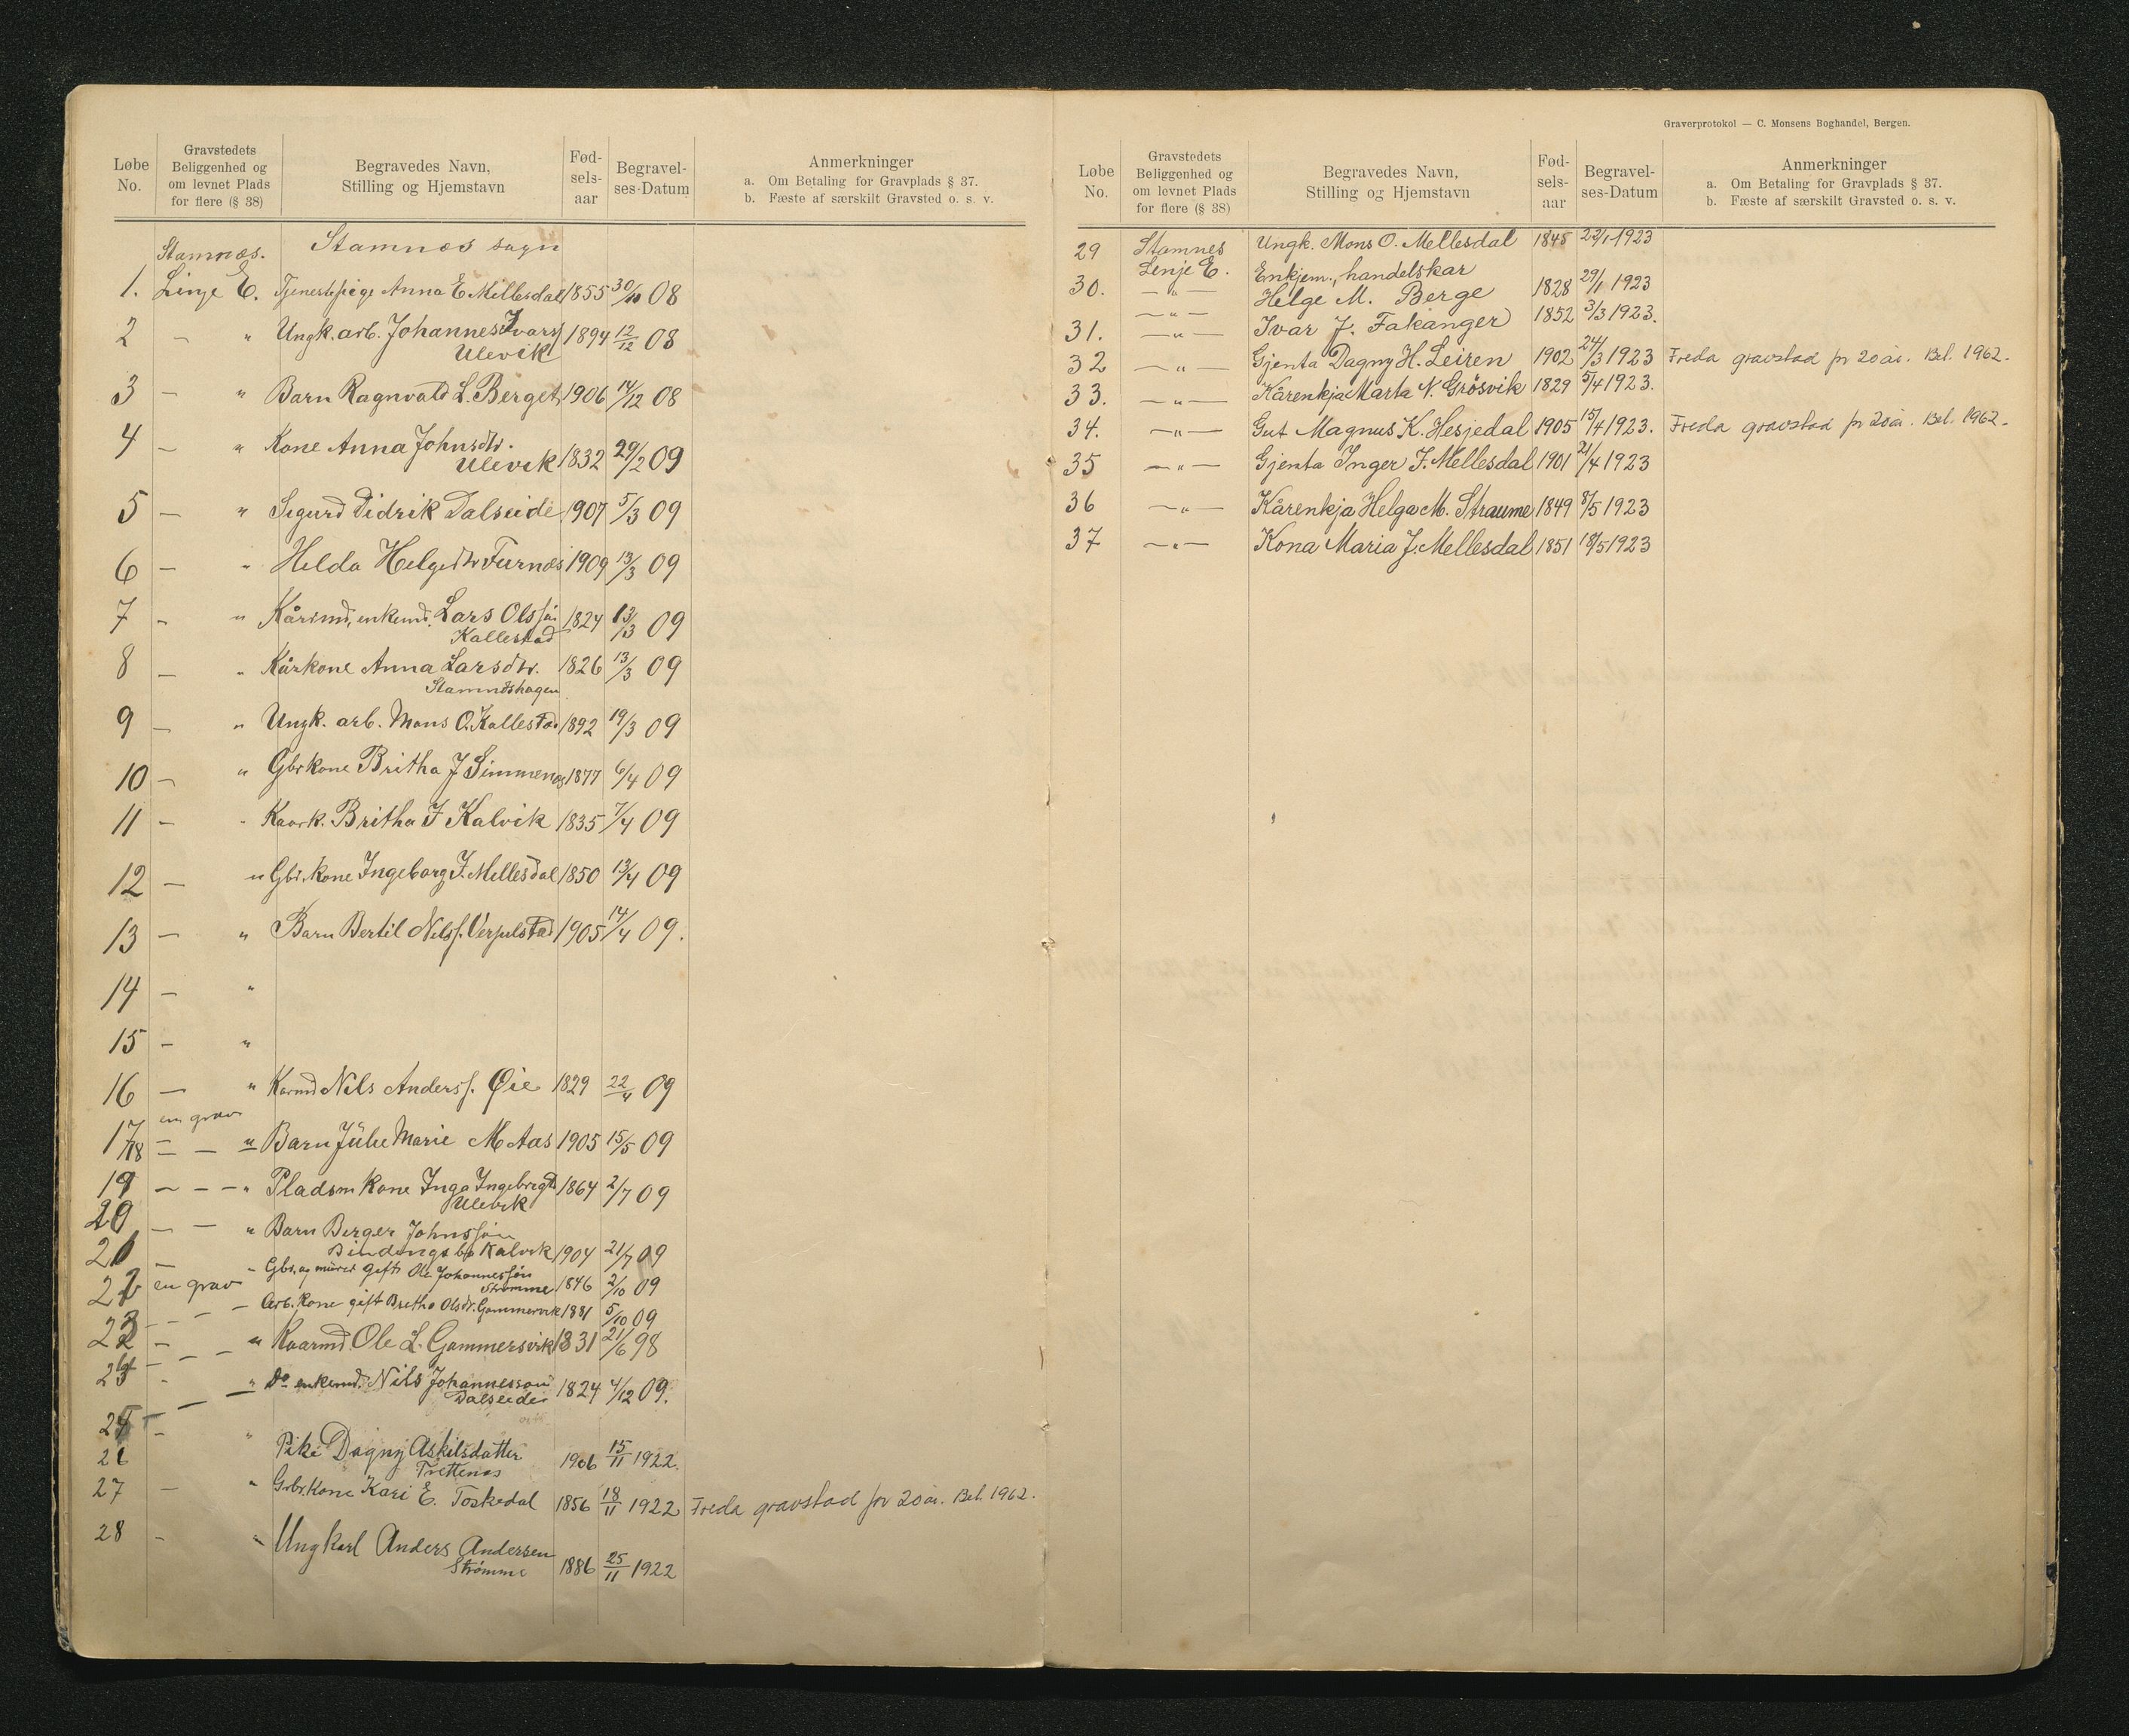 Løbe No.
Gravstedets Beliggenhed og om levnet Plads for flere (§ 38)
Begravedes Navn, Stilling og Hjemstavn
Fød-sels-aar
Begravel-ses-Datum
Anmerkninger
a. Om Betaling for Gravplads § 37.
b. Fæste af særskilt Gravsted o. s. v.
Stamnæs. Stamnæs sogn
1. Linje E. Tjenestepige Anna E Mellesdal 1855 30/10 08
2 — " Ungk. arb. Johannes Ivars
Ulevik 1894 12/12 08
3 — " Barn Ragnvald L. Berget 1906 14/12 08
4 — " Kone Anna Johnsdtr.
Ulevik 1832 29/2 09
5 — " Sigurd Didrik Dalseide 1907 5/3 09
6 — " Helda Helgedtr Furnæs 1909 13/3 09
7 — " Kårmd, enkemd. Lars Olssøn
Kallestad 1824 13/3 09
8 — " Kårkone Anna Larsdtr. 1826 13/3 09
Stamnæshagen
9 — " Ungk. arb. Mons O. Kallestad 1892 19/3 09
10 — " Gbrkone Britha J Simmenes 1877 6/4 09
11 — " Kaark. Britha J Kalvik 1835 7/4 09
12 — " Gbr. kone Ingeborg J. Mellesdal 1850 13/4 09
13 — " Barn Bertil Nilss. 1905 14/4 09.
14 — "
15 — "
16 — " Karmd Nils Anderss. Øie 1829 22/4 09
en grav
17/18 — — " Barn Julie Marie M Aas 1905 15/5 09
19 — — — " Pladsm kone Inga Ingebrigtd 1864 2/7 09
Ulevik
20 — — " Barn Berger Johnssøn
Kalvik 1904 21/7 09
21 — " Gbr. og murer gift Ole Johannessøn
Strømme 1846 2/10 09
22 en grav — Arb. kone gift Britha Olsdr. Gammersvik 1881 5/10 09
23 — " Kaarmd Ole L. Gammersvik 1831 21/6 98
24 — " Do enkemd. Nils Johannesson
Dalseide 1824 4/12 09.
25 — "
26 Pike Dagny Askilsdatter
Trettenes 1906 15/11 1922.
27 — " Grbr. Kone Kari E. Toskedal 1856 18/11 1922 Freda gravstad for 20 år. Bet. 1962.
28 — " Ungkarl Anders Andersen
Strømme 1886 25/11 1922
Graverprotokol — C. Monsens Boghandel, Bergen.
Løbe No.
Gravstedets Beliggenhed og om levnet Plads for flere (§ 38)
Begravedes Navn, Stilling og Hjemstavn
Fød-sels-aar
Begravel-ses-Datum
Anmerkninger
a. Om Betaling for Gravplads § 37.
b. Fæste af særskilt Gravsted o. s. v.
29 Stamnes Ungk. Mons O. Mellesdal 1848 23/1 1923
Lenje E. Enkjem., handelskar
30. — " — Helge M. Berge 1828 29/1 1923
— " —
31. — " — Ivar J. Fakanger 1852 3/3 1923.
32 — " — Gjenta Dagny H. Leiren 1902 24/3 1923 Freda gravstad for 20 år. Bet. 1962.
33. — " — Kårenkja Marta N. Grøsvik 1829 5/4 1923.
34. — " — Gut Magnus K. Hesjedal 1905 15/4 1923. Freda gravstad for 20 år. Bet. 1962.
35 — " — Gjenta Inger J. Mellesdal 1901 21/4 1923
36 — " — Kårenkja Helga M. Straume 1849 8/5 1923
37 — " — Kona Maria J. Mellesdal 1851 18/5 1923